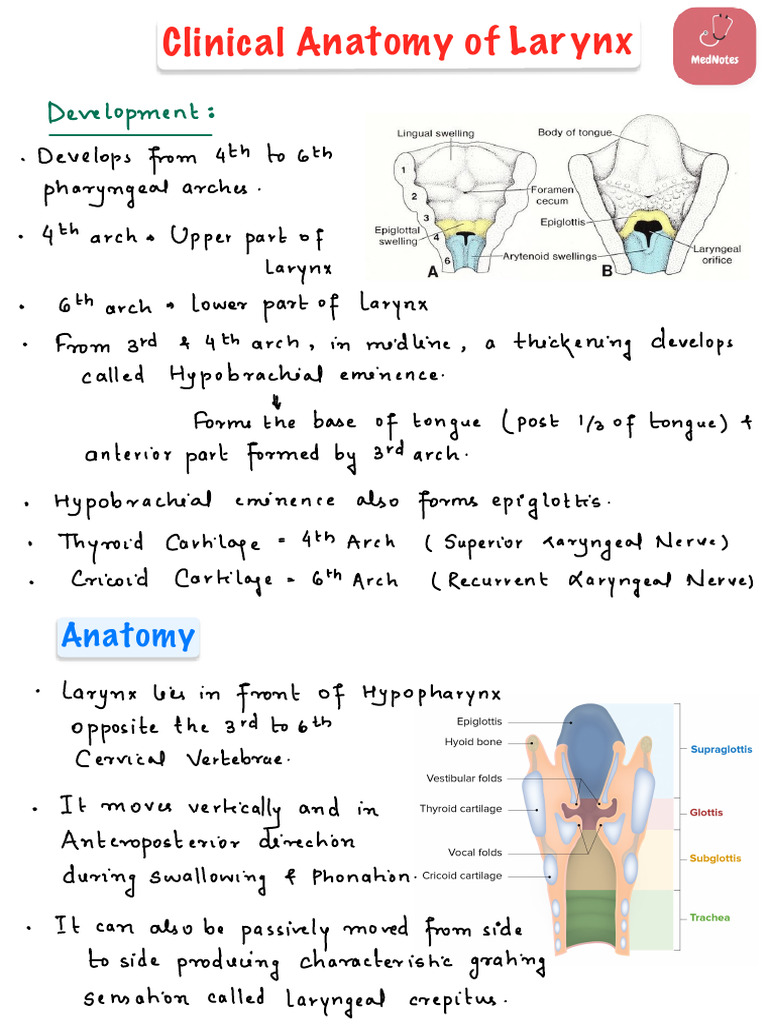 Clinical Anatomy of Larynx
MedNotes
Development:
• Develops from 4th to 6th
pharyngeal arches.
• 4th arch → Upper part of
Larynx
• 6th arch → Lower part of Larynx
• From 3rd & 4th arch, in midline, a thickening develops
called Hypobrachial eminence.
↓
Forms the base of tongue (post 1/3 of tongue) &
anterior part formed by 3rd arch.
• Hypobrachial eminence also forms epiglottis.
• Thyroid Cartilage = 4th Arch (Superior Laryngeal Nerve)
• Cricoid Cartilage = 6th Arch (Recurrent Laryngeal Nerve)
Lingual swelling
Body of tongue
1
2
3
4
6
Foramen
cecum
Epiglottal
swelling
Epiglottis
Arytenoid swellings
Laryngeal
orifice
A
B
Anatomy
• Larynx lies in front of Hypopharynx
opposite the 3rd to 6th
Cervical Vertebrae.
• It moves vertically and in
Anteroposterior direction
during swallowing & Phonation.
• It can also be passively moved from side
to side producing characteristic grating
sensation called Laryngeal crepitus.
Epiglottis
Hyoid bone
Vestibular folds
Thyroid cartilage
Vocal folds
Cricoid cartilage
Supraglottis
Glottis
Subglottis
Trachea